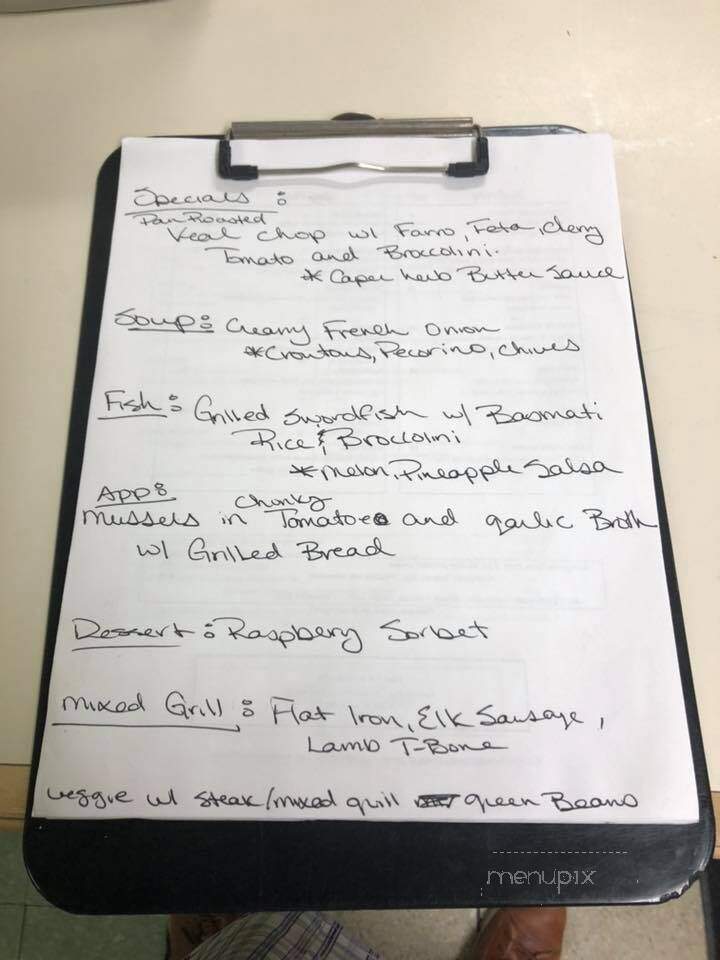 Specials:
Pan Roasted
Veal chop w/ Farro, Feta, cherry
Tomato and Broccolini.
* Caper herb Butter Sauce
Soup: Creamy French Onion
*Croutons, Pecorino, chives
Fish: Grilled Swordfish w/ Basmati
Rice & Broccolini
*melon, Pineapple Salsa
App:
Chunky
Mussels in Tomatoe and garlic Broth
w/ Grilled Bread
Dessert: Raspberry Sorbet
Mixed Grill: Flat Iron, Elk Sausage,
Lamb T-Bone
veggie w/ steak/mixed grill green Beans
menupix